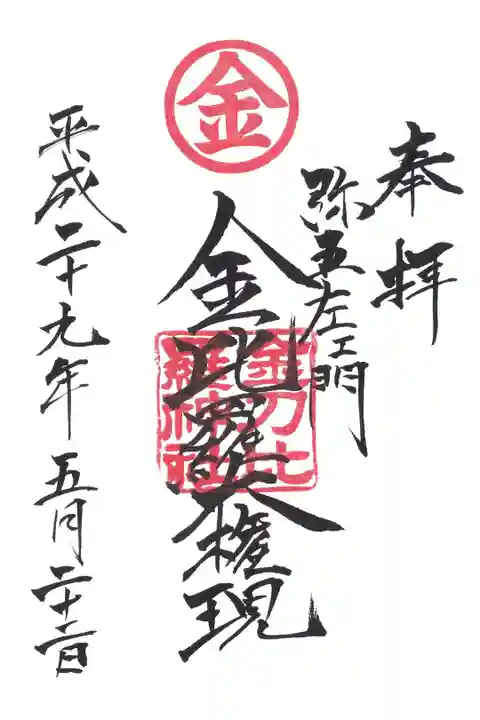 奉拝
弥五左ェ門
金
金比羅大権現
金刀比
羅神社
平成二十九年五月二十二日